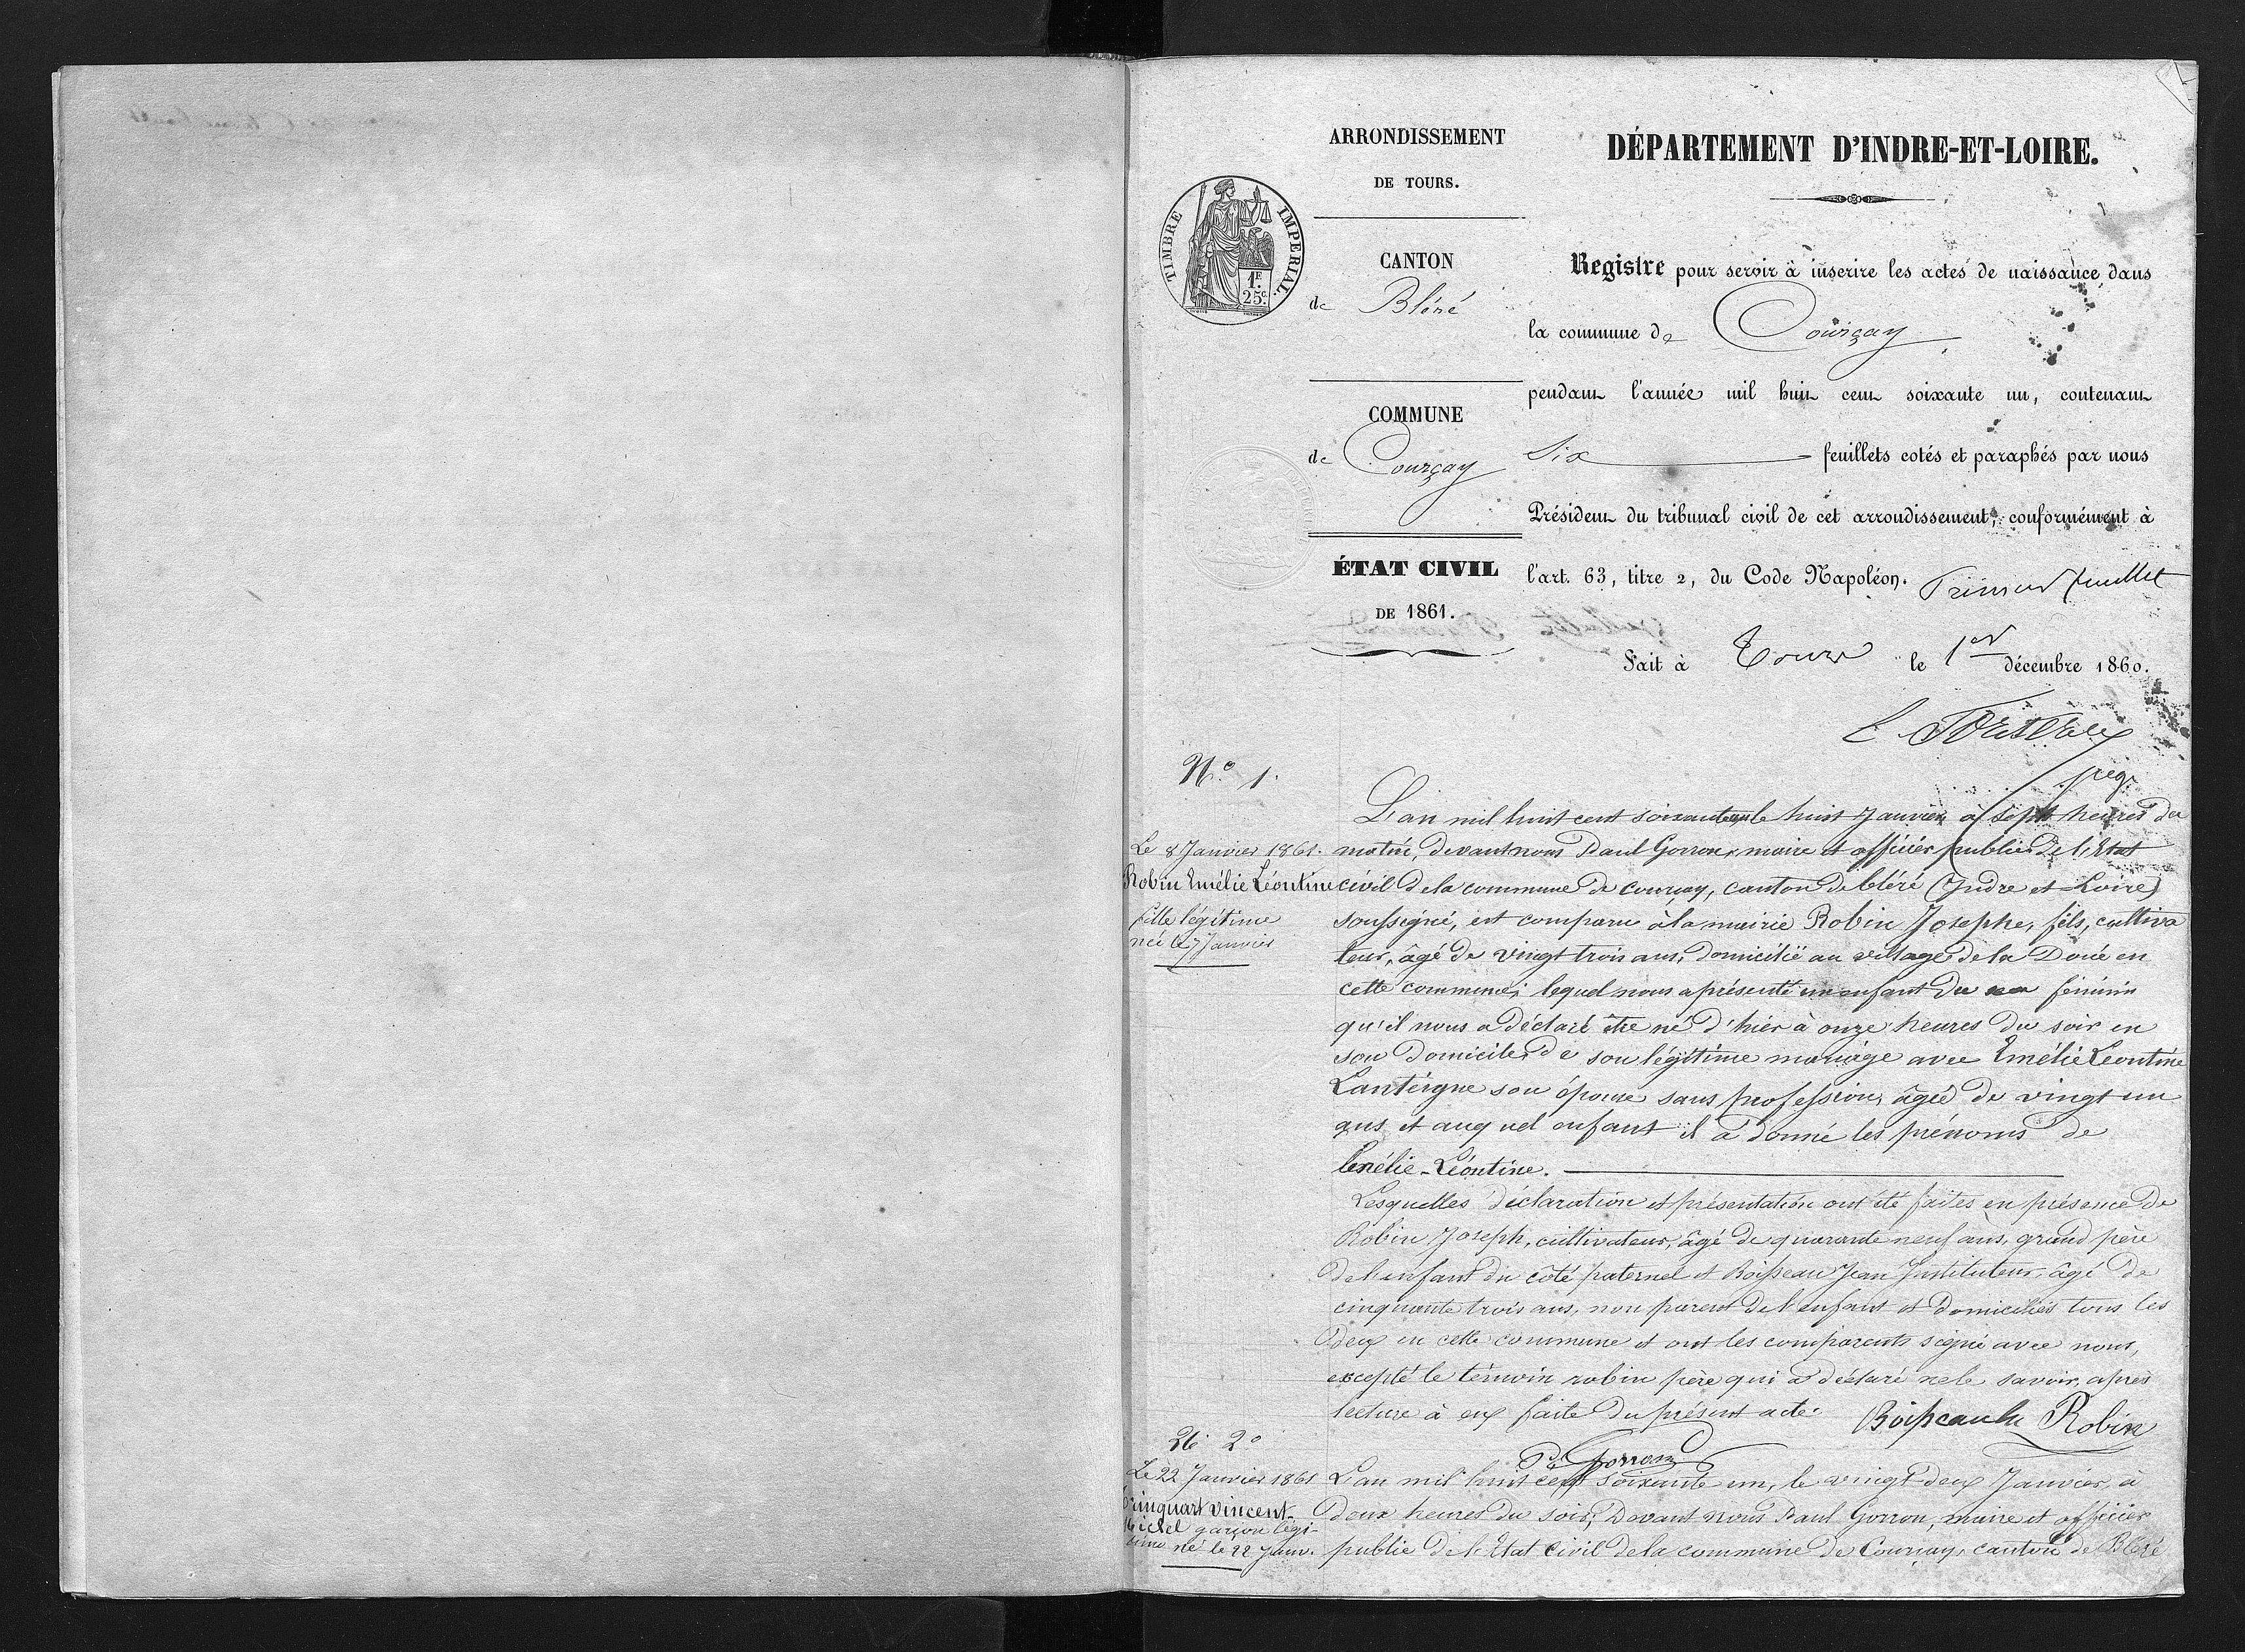 ARRONDISSEMENT
DE TOURS.
TIMBRE IMPERIAL.
1F.
25c.
CANTON
de Bléré
COMMUNE
de Courçay
ÉTAT CIVIL
DE 1861.
DÉPARTEMENT D'INDRE-ET-LOIRE.
Registre pour servir à inscrire les actes de naissance dans
la commune de Courçay
pendant l'année mil huit cent soixante un, contenant
Six feuillets cotés et paraphés par nous
Président du tribunal civil de cet arrondissement, conformément à
l'art. 63, titre 2, du Code Napoléon. Premier feuillet
Fait à Tours le 1er décembre 1860.
N.o 1.
Le 8 Janvier 1861.
Robin Emélie Léontine
fille légitime
née le 7 Janvier
L'an mil huit cent soixante un le huit Janvier à sept heures du
matin, devant nous Paul Gorron, maire et officier public de l'Etat
civil de la commune de courçay, canton de bléré (Indre et Loire)
soussigné, est comparu à la mairie Robin Josephe, fils, cultiva
teur, âgé de vingt trois ans, domicilié au village de la Doué en
cette commune; lequel nous a présenté un enfant du sexe féminin
qu'il nous a déclaré être né d'hier à onze heures du soir en
son domicile, de son légitime mariage avec Emélie Léontine
Lanteigne son épouse sans profession, âgée de vingt un
ans et auquel enfant il a donné les prénoms de
Emélie-Léontine.
Lesquelles déclaration et présentation ont été faites en présence de
Robin Joseph, cultivateur, âgé de quarante neuf ans, grand père
de l'enfant du côté paternel et Boisseau Jean Instituteur, âgé de
cinquante trois ans, non parent de l'enfant et domiciliés tous les
deux en cette commune et ont les comparents signé avec nous,
excepté le témoin robin père qui a déclaré ne le savoir, après
lecture à eux faite du présent acte. Boisseau Robin
P. Gorron
N.o 2o
Le 22 Janvier 1861
vincent-
Michel garçon légi-
time né le 22 Janv.
L'an mil huit cent soixante un, le vingt deux Janvier, à
deux heures du soir, Devant nous Paul Gorron, maire et officier
public de l'Etat Civil de la commune de Courçay, canton de Bléré